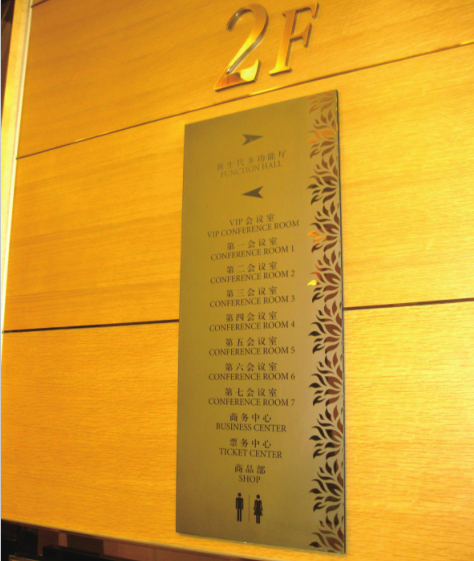 2F
多功能厅
FUNCTION HALL
VIP 会议室
VIP CONFERENCE ROOM
第一会议室
CONFERENCE ROOM 1
第二会议室
CONFERENCE ROOM 2
第三会议室
CONFERENCE ROOM 3
第四会议室
CONFERENCE ROOM 4
第五会议室
CONFERENCE ROOM 5
第六会议室
CONFERENCE ROOM 6
第七会议室
CONFERENCE ROOM 7
商务中心
BUSINESS CENTER
票务中心
TICKET CENTER
商品部
SHOP